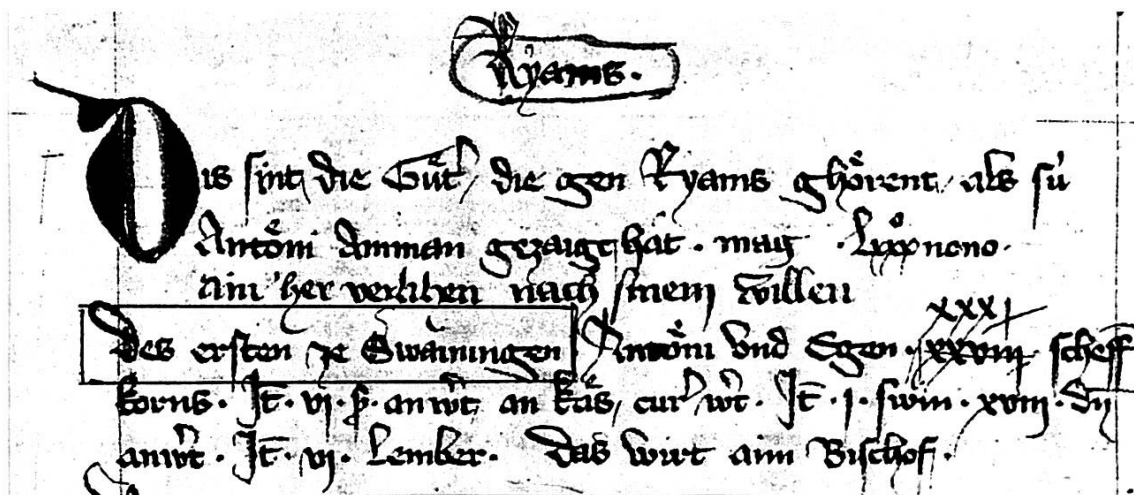 Ryams.
Dis sint die Guͤt᷎ die gen Ryams ghoͤrent als sú
Antoͤni Amman gezaigt hât. mag . lxxxͦnono.
Ain her verlihen nach sinem willen
Des ersten ze Swainingen Antoͤni vnd Egen .
xxxj
xxviij scheff
korns . It̄ . vj . anwt̾ an kaͤs, cur᷎ wt̾ . It̄ . j . swin . xviij . dn
anwt̾ . It̄ . vj . Lember . das wirt aim Bischof .